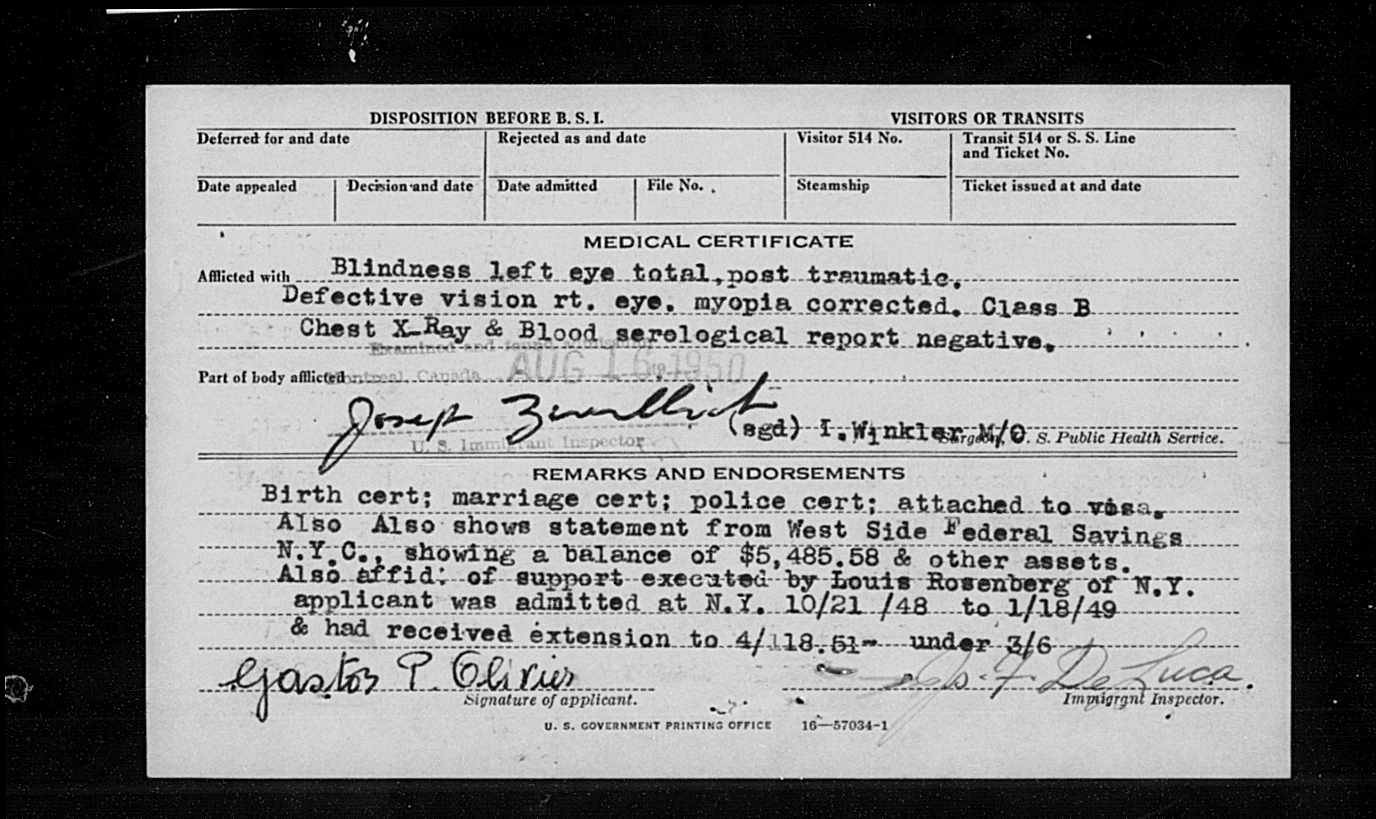 DISPOSITION BEFORE B. S. I. VISITORS OR TRANSITS
Deferred for and date Rejected as and date Visitor 514 No. Transit 514 or S. S. Line
and Ticket No.
Date appealed Decision and date Date admitted File No. Steamship Ticket issued at and date
MEDICAL CERTIFICATE
Afflicted with Blindness left eye total,post traumatic.
Defective vision rt. eye. myopia corrected. Class B
Chest X-Ray & Blood serological report negative.
Examined and
Part of body afflicted Montreal, Canada AUG 16 1950
Joseph
(sgd) I.Winkler M/O Surgeon, U. S. Public Health Service.
U. S. Immigrant Inspector
REMARKS AND ENDORSEMENTS
Birth cert; marriage cert; police cert; attached to visa.
Also Also shows statement from West Side Federal Savings
N.Y.C., showing a balance of $5,485.58 & other assets.
Also affid. of support executed by Louis Rosenberg of N.Y.
applicant was admitted at N.Y. 10/21 /48 to 1/18/49
& had received extension to 4/118.51- under 3/6
Gaston P. Olivier Js. F. De Luca.
Signature of applicant. Immigrant Inspector.
U. S. GOVERNMENT PRINTING OFFICE 16—57034-1